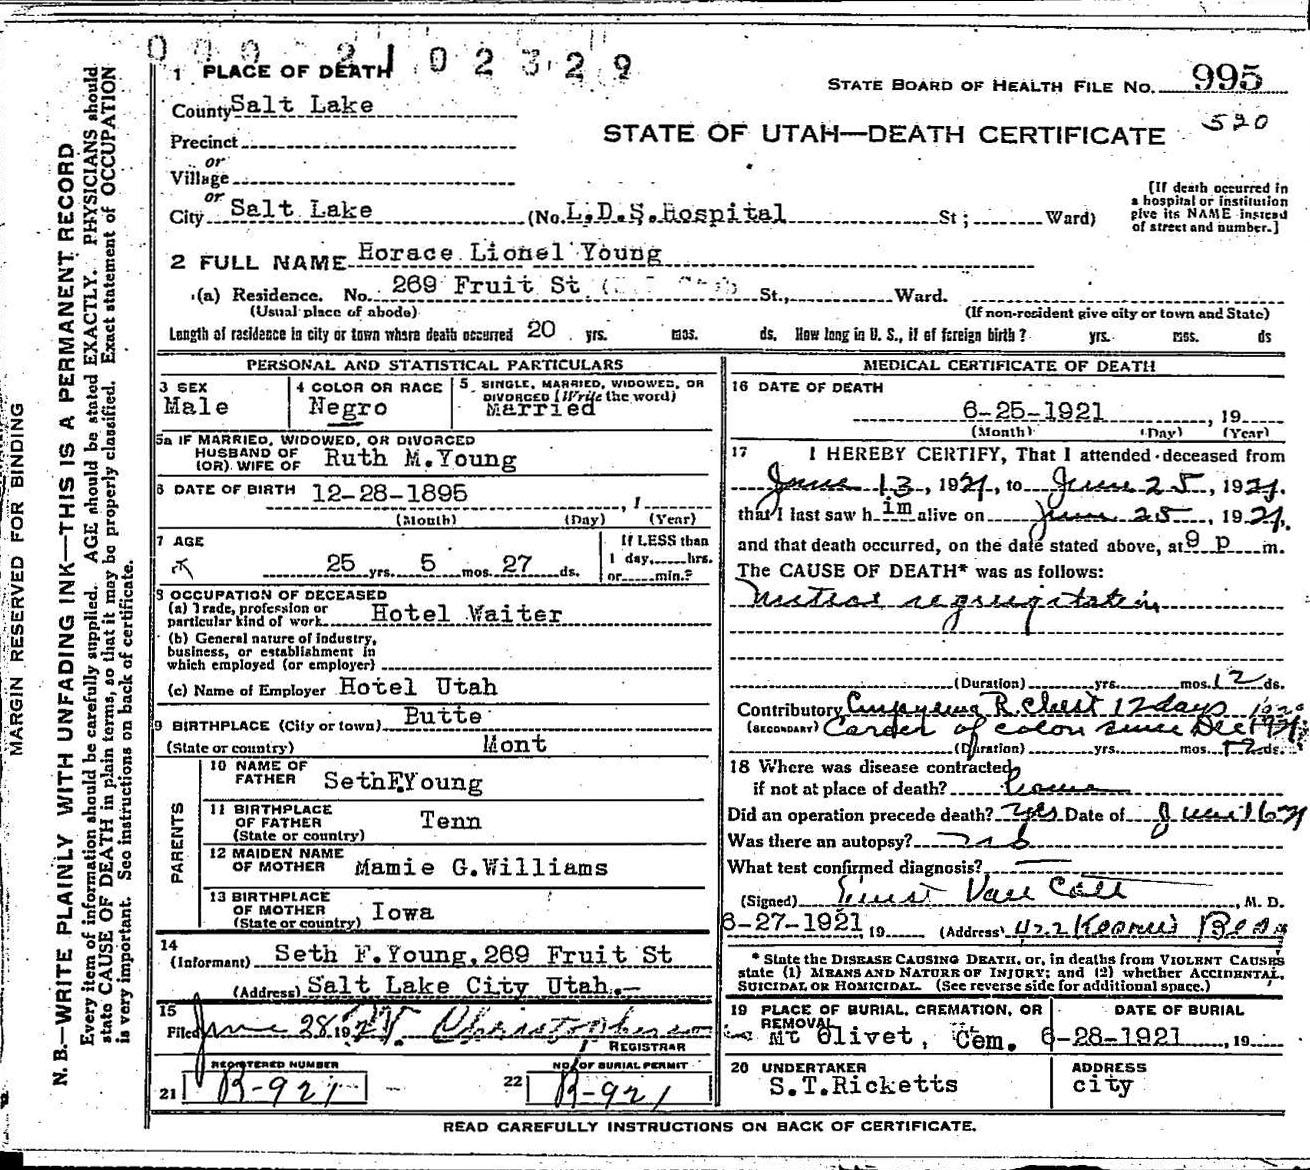 000 2102329
1 PLACE OF DEATH
STATE BOARD OF HEALTH FILE NO. 995
County Salt Lake
520
STATE OF UTAH—DEATH CERTIFICATE
Precinct
or
Village
or
City Salt Lake (No. L.D.S.Hospital St; Ward)
[If death occurred in
a hospital or institution
give its NAME instead
of street and number.]
2 FULL NAME Horace Lionel Young
(a) Residence. No. 269 Fruit St. St., Ward.
(Usual place of abode) (If non-resident give city or town and State)
Length of residence in city or town where death occurred 20 yrs. mos. ds. How long in U. S., if of foreign birth? yrs. mos. ds
PERSONAL AND STATISTICAL PARTICULARS
3 SEX
Male
4 COLOR OR RACE
Negro
5. SINGLE, MARRIED, WIDOWED, OR
DIVORCED (Write the word)
Married
5a IF MARRIED, WIDOWED, OR DIVORCED
HUSBAND OF
(OR) WIFE OF Ruth M.Young
6 DATE OF BIRTH 12-28-1895 , 1
(Month) (Day) (Year)
7 AGE
25 yrs. 5 mos. 27 ds.
If LESS than
1 day, hrs.
or min.?
8 OCCUPATION OF DECEASED
(a) Trade, profession or
particular kind of work Hotel Waiter
(b) General nature of industry,
business, or establishment in
which employed (or employer)
(c) Name of Employer Hotel Utah
9 BIRTHPLACE (City or town) Butte
(State or country) Mont
PARENTS
10 NAME OF
FATHER SethF.Young
11 BIRTHPLACE
OF FATHER
(State or country) Tenn
12 MAIDEN NAME
OF MOTHER Mamie G.Williams
13 BIRTHPLACE
OF MOTHER
(State or country) Iowa
14
(Informant) Seth F.Young,269 Fruit St
(Address) Salt Lake City Utah.-
15
Filed June 28 1921 Christopherson
REGISTRAR
REGISTERED NUMBER
21 R-921
NO. OF BURIAL PERMIT
22 R-921
MEDICAL CERTIFICATE OF DEATH
16 DATE OF DEATH
6-25-1921 , 19
(Month) (Day) (Year)
17 I HEREBY CERTIFY, That I attended deceased from
June 13, 1921, to June 25, 1921.
that I last saw him alive on June 25, 1921,
and that death occurred, on the date stated above, at 9 p m.
The CAUSE OF DEATH* was as follows:
Mitral regurgitation
(Duration) yrs. mos. 12 ds.
Contributory Empyema R. Chest 12 days 1920
(SECONDARY) of colon since Dec
(Duration) yrs. mos. 12 ds.
18 Where was disease contracted
if not at place of death? home
Did an operation precede death? yes Date of June 16 21
Was there an autopsy? no
What test confirmed diagnosis?
(Signed) Ernest Van Cott, M. D.
6-27-1921, 19 (Address) 422 Kearns Bldg
* State the DISEASE CAUSING DEATH, or, in deaths from VIOLENT CAUSES
state (1) MEANS AND NATURE OF INJURY; and (2) whether ACCIDENTAL,
SUICIDAL OR HOMICIDAL. (See reverse side for additional space.)
19 PLACE OF BURIAL, CREMATION, OR
REMOVAL
Mt Olivet, Cem.
DATE OF BURIAL
6-28-1921 , 19
20 UNDERTAKER
S.T.Ricketts
ADDRESS
city
READ CAREFULLY INSTRUCTIONS ON BACK OF CERTIFICATE.
MARGIN RESERVED FOR BINDING
N. B.—WRITE PLAINLY WITH UNFADING INK—THIS IS A PERMANENT RECORD
Every item of information should be carefully supplied. AGE should be stated EXACTLY. PHYSICIANS should
state CAUSE OF DEATH in plain terms, so that it may be properly classified. Exact statement of OCCUPATION
is very important. See instructions on back of certificate.